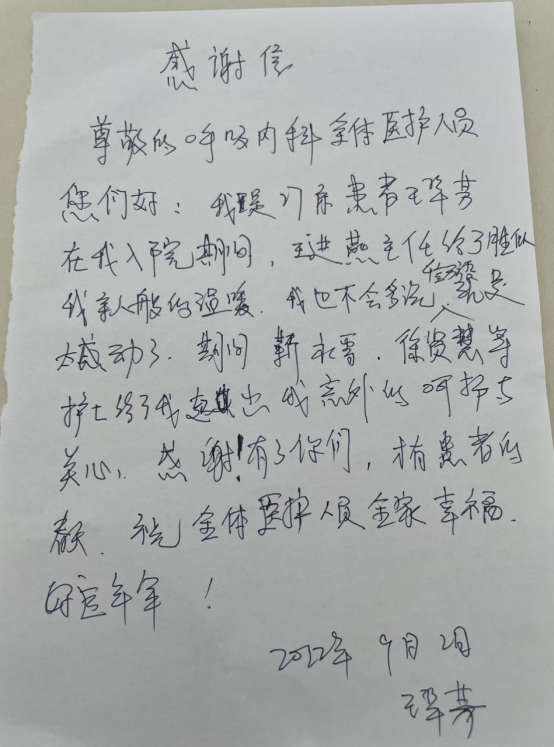 感谢信
尊敬的呼吸内科全体医护人员
您们好：我是17床患者王翠芳
在我入院期间，王进燕主任给了胜似
我亲人般的温暖.我也不会多说 就是
太感动了.期间靳永雪.徐贤慧等
护士给了我意出我意外的呵护与
关心.感谢!有了你们，才有患者的
春天.祝全体医护人员全家幸福.
好运年年！
2022年9月2日
王翠芳